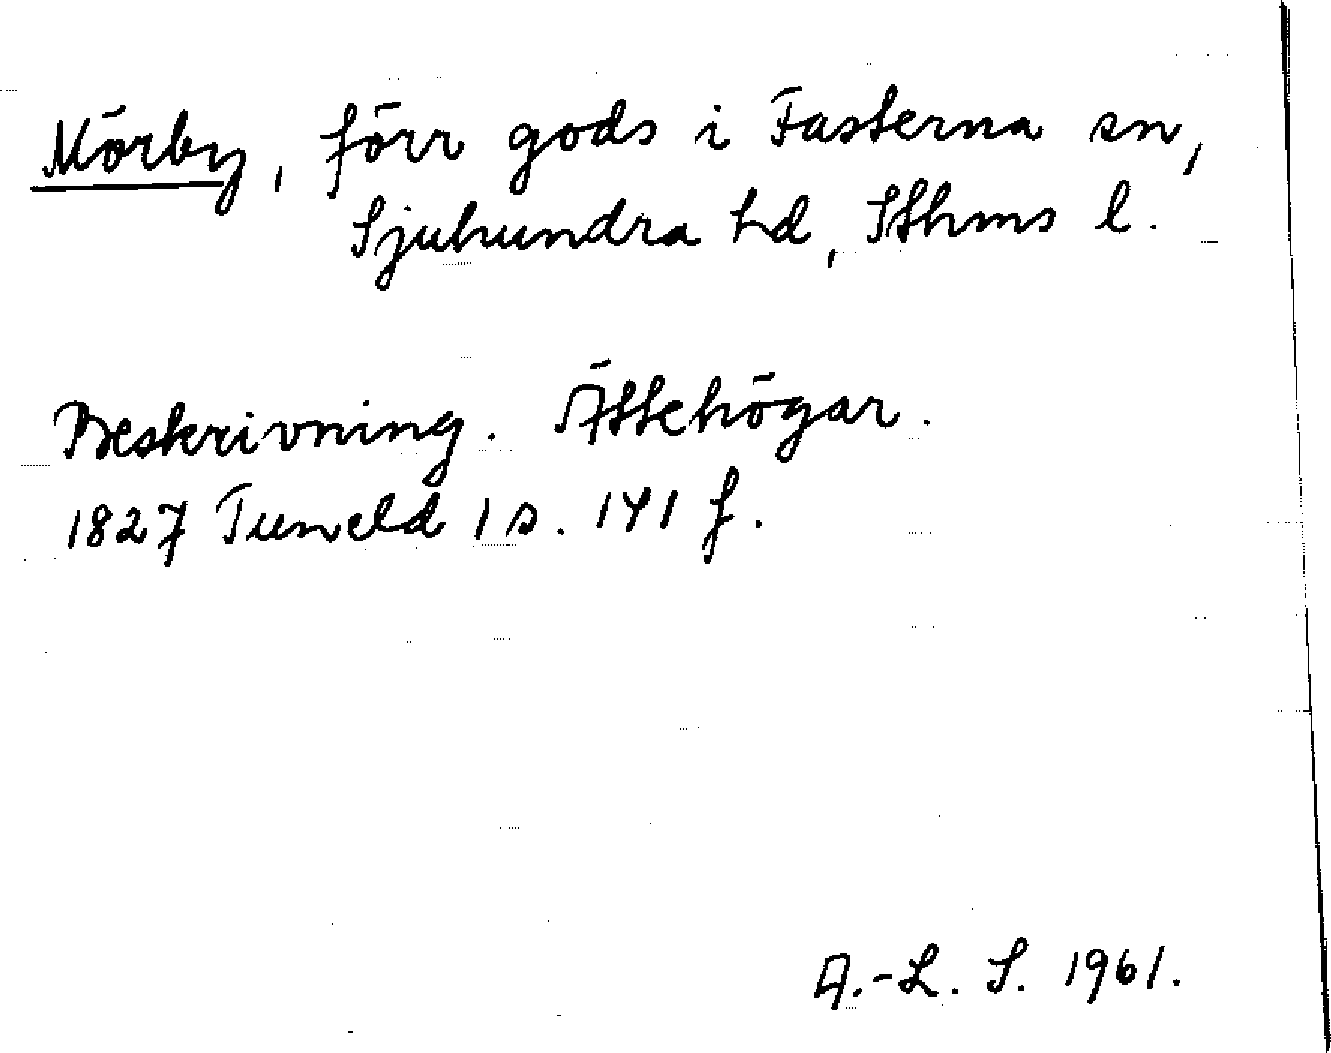 Mörby, förr gods i Fasterna sn,
Sjuhundra hd, Sthms l.
Beskrivning. Ättehögar.
1827 Tuneld 1 s. 141 f.
A.-L. S. 1961.